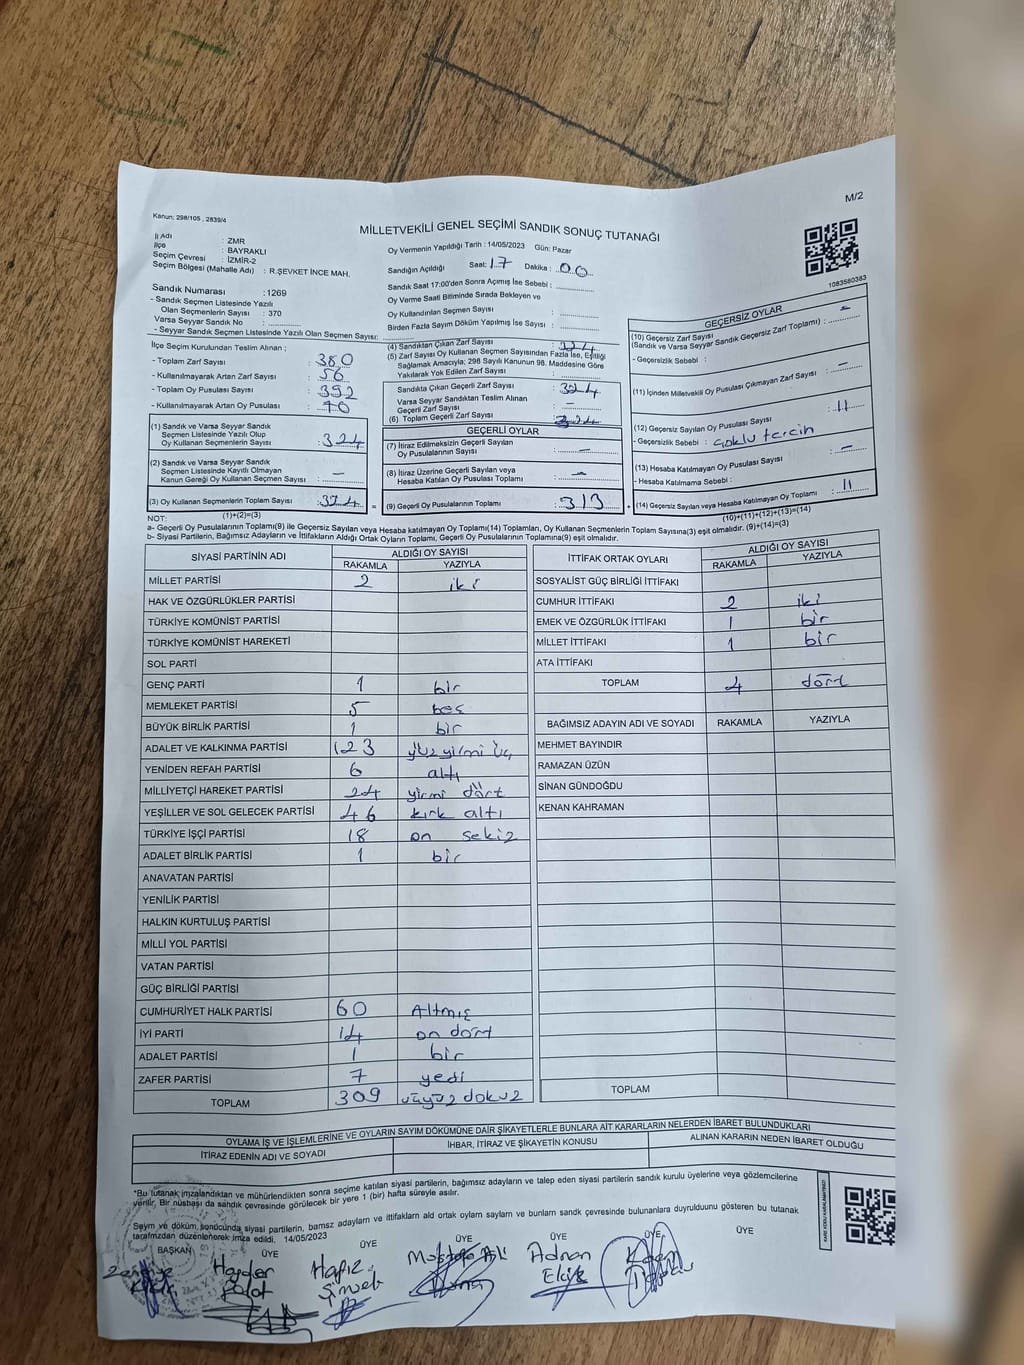 M/2
Kanun: 298/105 , 2839/4
MİLLETVEKİLİ GENEL SEÇİMİ SANDIK SONUÇ TUTANAĞI
İl Adı : ZMR
İlçe : BAYRAKLI
Seçim Çevresi : İZMİR-2
Seçim Bölgesi (Mahalle Adı) : R.ŞEVKET İNCE MAH.
Sandık Numarası : 1269
- Sandık Seçmen Listesinde Yazılı
Olan Seçmenlerin Sayısı : 370
Varsa Seyyar Sandık No :
- Seyyar Sandık Seçmen Listesinde Yazılı Olan Seçmen Sayısı:
Oy Vermenin Yapıldığı Tarih : 14/05/2023 Gün: Pazar
Sandığın Açıldığı Saat: 17 Dakika : 00
Sandık Saat 17:00'den Sonra Açımış İse Sebebi :
Oy Verme Saati Bitiminde Sırada Bekleyen ve
Oy Kullandırılan Seçmen Sayısı :
Birden Fazla Sayım Döküm Yapılmış İse Sayısı :
1083580383
İlçe Seçim Kurulundan Teslim Alınan ;
- Toplam Zarf Sayısı : 380
- Kullanılmayarak Artan Zarf Sayısı : 56
- Toplam Oy Pusulası Sayısı : 392
- Kullanılmayarak Artan Oy Pusulası : 70
(1) Sandık ve Varsa Seyyar Sandık
Seçmen Listesinde Yazılı Olup
Oy Kullanan Seçmenlerin Sayısı : 324
(2) Sandık ve Varsa Seyyar Sandık
Seçmen Listesinde Kayıtlı Olmayan
Kanun Gereği Oy Kullanan Seçmen Sayısı : -
(3) Oy Kullanan Seçmenlerin Toplam Sayısı : 324
(1)+(2)=(3)
(4) Sandıktan Çıkan Zarf Sayısı : 324
(5) Zarf Sayısı Oy Kullanan Seçmen Sayısından Fazla İse, Eşitliği
Sağlamak Amacıyla; 298 Sayılı Kanunun 98. Maddesine Göre
Yakılarak Yok Edilen Zarf Sayısı :
Sandıkta Çıkan Geçerli Zarf Sayısı : 324
Varsa Seyyar Sandıktan Teslim Alınan
Geçerli Zarf Sayısı : -
(6) Toplam Geçerli Zarf Sayısı : 324
GEÇERLİ OYLAR
(7) İtiraz Edilmeksizin Geçerli Sayılan
Oy Pusulasının Sayısı : -
(8) İtiraz Üzerine Geçerli Sayılan veya
Hesaba Katılan Oy Pusulası Sayısı : -
= (9) Geçerli Oy Pusulalarının Toplamı : 313
GEÇERSİZ OYLAR
(10) Geçersiz Zarf Sayısı : -
(Sandık ve Varsa Seyyar Sandık Geçersiz Zarf Toplamı) :
- Geçersizlik Sebebi :
(11) İçinden Milletvekili Oy Pusulası Çıkmayan Zarf Sayısı : -
(12) Geçersiz Sayılan Oy Pusulası Sayısı : 11
- Geçersizlik Sebebi : çoklu tercih
(13) Hesaba Katılmayan Oy Pusulası Sayısı : -
- Hesaba Katılmama Sebebi :
+ (14) Geçersiz Sayılan veya Hesaba Katılmayan Oy Toplamı : 11
(10)+(11)+(12)+(13)=(14)
NOT:
a- Geçerli Oy Pusulalarının Toplamı(9) ile Geçersiz Sayılan veya Hesaba katılmayan Oy Toplamı(14) Toplamları, Oy Kullanan Seçmenlerin Toplam Sayısına(3) eşit olmalıdır. (9)+(14)=(3)
b- Siyasi Partilerin, Bağımsız Adayların ve İttifakların Aldığı Ortak Oyların Toplamı, Geçerli Oy Pusulalarının Toplamına(9) eşit olmalıdır.
SİYASİ PARTİNİN ADI ALDIĞI OY SAYISI
RAKAMLA YAZIYLA
MİLLET PARTİSİ 2 iki
HAK VE ÖZGÜRLÜKLER PARTİSİ
TÜRKİYE KOMÜNİST PARTİSİ
TÜRKİYE KOMÜNİST HAREKETİ
SOL PARTİ
GENÇ PARTİ 1 bir
MEMLEKET PARTİSİ 5 beş
BÜYÜK BİRLİK PARTİSİ 1 bir
ADALET VE KALKINMA PARTİSİ 123 yüz yirmi üç
YENİDEN REFAH PARTİSİ 6 altı
MİLLİYETÇİ HAREKET PARTİSİ 24 yirmi dört
YEŞİLLER VE SOL GELECEK PARTİSİ 46 kırk altı
TÜRKİYE İŞÇİ PARTİSİ 18 on sekiz
ADALET BİRLİK PARTİSİ 1 bir
ANAVATAN PARTİSİ
YENİLİK PARTİSİ
HALKIN KURTULUŞ PARTİSİ
MİLLİ YOL PARTİSİ
VATAN PARTİSİ
GÜÇ BİRLİĞİ PARTİSİ
CUMHURİYET HALK PARTİSİ 60 Altmış
İYİ PARTİ 14 on dört
ADALET PARTİSİ 1 bir
ZAFER PARTİSİ 7 yedi
TOPLAM 309 üçyüz dokuz
İTTİFAK ORTAK OYLARI ALDIĞI OY SAYISI
RAKAMLA YAZIYLA
SOSYALİST GÜÇ BİRLİĞİ İTTİFAKI
CUMHUR İTTİFAKI 2 iki
EMEK VE ÖZGÜRLÜK İTTİFAKI 1 bir
MİLLET İTTİFAKI 1 bir
ATA İTTİFAKI
TOPLAM 4 dört
BAĞIMSIZ ADAYIN ADI VE SOYADI RAKAMLA YAZIYLA
MEHMET BAYINDIR
RAMAZAN ÜZÜN
SİNAN GÜNDOĞDU
KENAN KAHRAMAN
TOPLAM
OYLAMA İŞ VE İŞLEMLERİNE VE OYLARIN SAYIM DÖKÜMÜNE DAİR ŞİKAYETLERLE BUNLARA AİT KARARLARIN NELERDEN İBARET BULUNDUKLARI
İTİRAZ EDENİN ADI VE SOYADI İHBAR, İTİRAZ VE ŞİKAYETİN KONUSU ALINAN KARARIN NEDEN İBARET OLDUĞU
*Bu tutanak imzalandıktan ve mühürlendikten sonra seçime katılan siyasi partilerin, bağımsız adayların ve talep eden siyasi partilerin sandık kurulu üyelerine veya gözlemcilerine
verilir. Bir nüshası da sandık çevresinde görülecek bir yere 1 (bir) hafta süreyle asılır.
Sayım ve döküm sonucunda siyasi partilerin, bamsz adayların ve ittifakların ald ortak oylarn saylarn ve bunlarn sandk çevresinde bulunanlara duyrulduunu gösteren bu tutanak
tarafmzdan düzenlenerek imza edildi. 14/05/2023
BAŞKAN ÜYE ÜYE ÜYE ÜYE ÜYE ÜYE
Haydar Polat
Hafız
Mustafa Ali
Adnan
Kaan